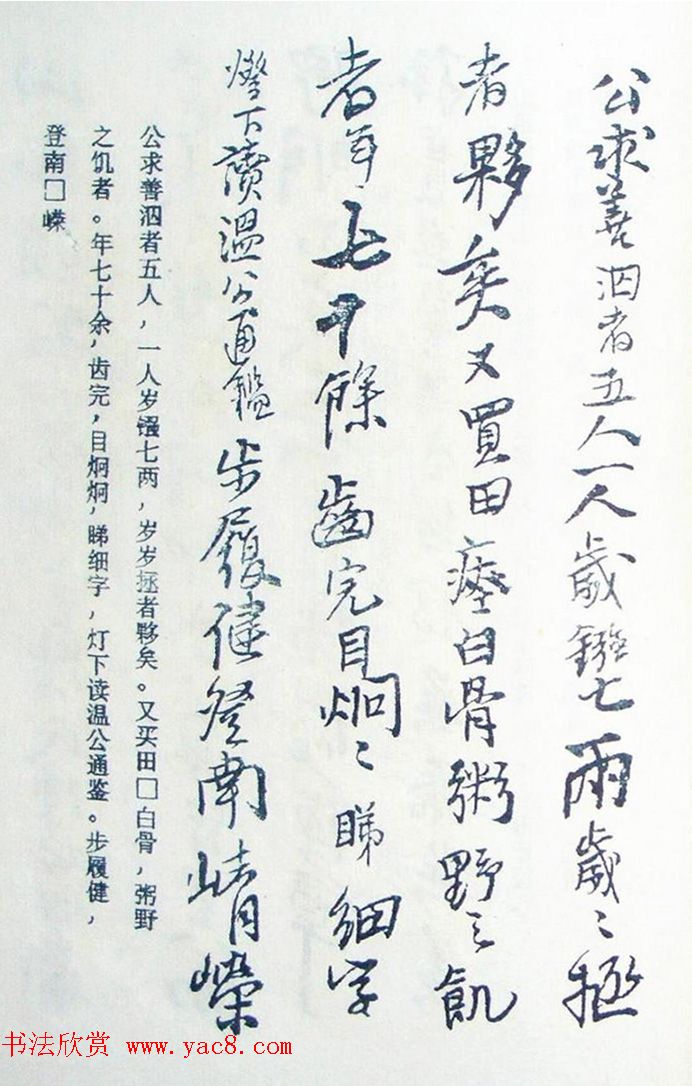 公求善泅者五人一人歲鏹七兩歲〻拯
者夥矣又買田瘞白骨粥野之飢
者年七十餘齒完目炯〻睇細字
燈下讀溫公通鑑步履健登南崝嶸
公求善泅者五人，一人岁镪七两，岁岁拯者夥矣。又买田□白骨，粥野
之饥者。年七十余，齿完，目炯炯，睇细字，灯下读温公通鉴。步履健，
登南□嵘
书法欣赏 www.yac8.com